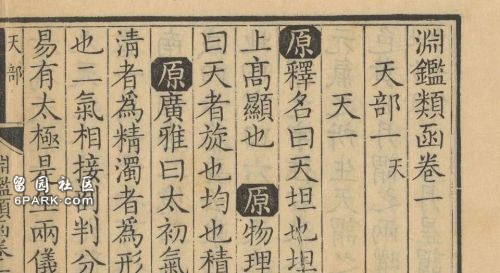 淵鑑類函卷一
天部一 天
天一
原釋名曰天坦也坦
上髙顯也 原物理
曰天者旋也均也積
原廣雅曰太初氣
清者爲精濁者爲形
也二氣相接剖判分
易有太極是生兩儀
天部
淵鑑類函卷
留园社区
6PARK.COM